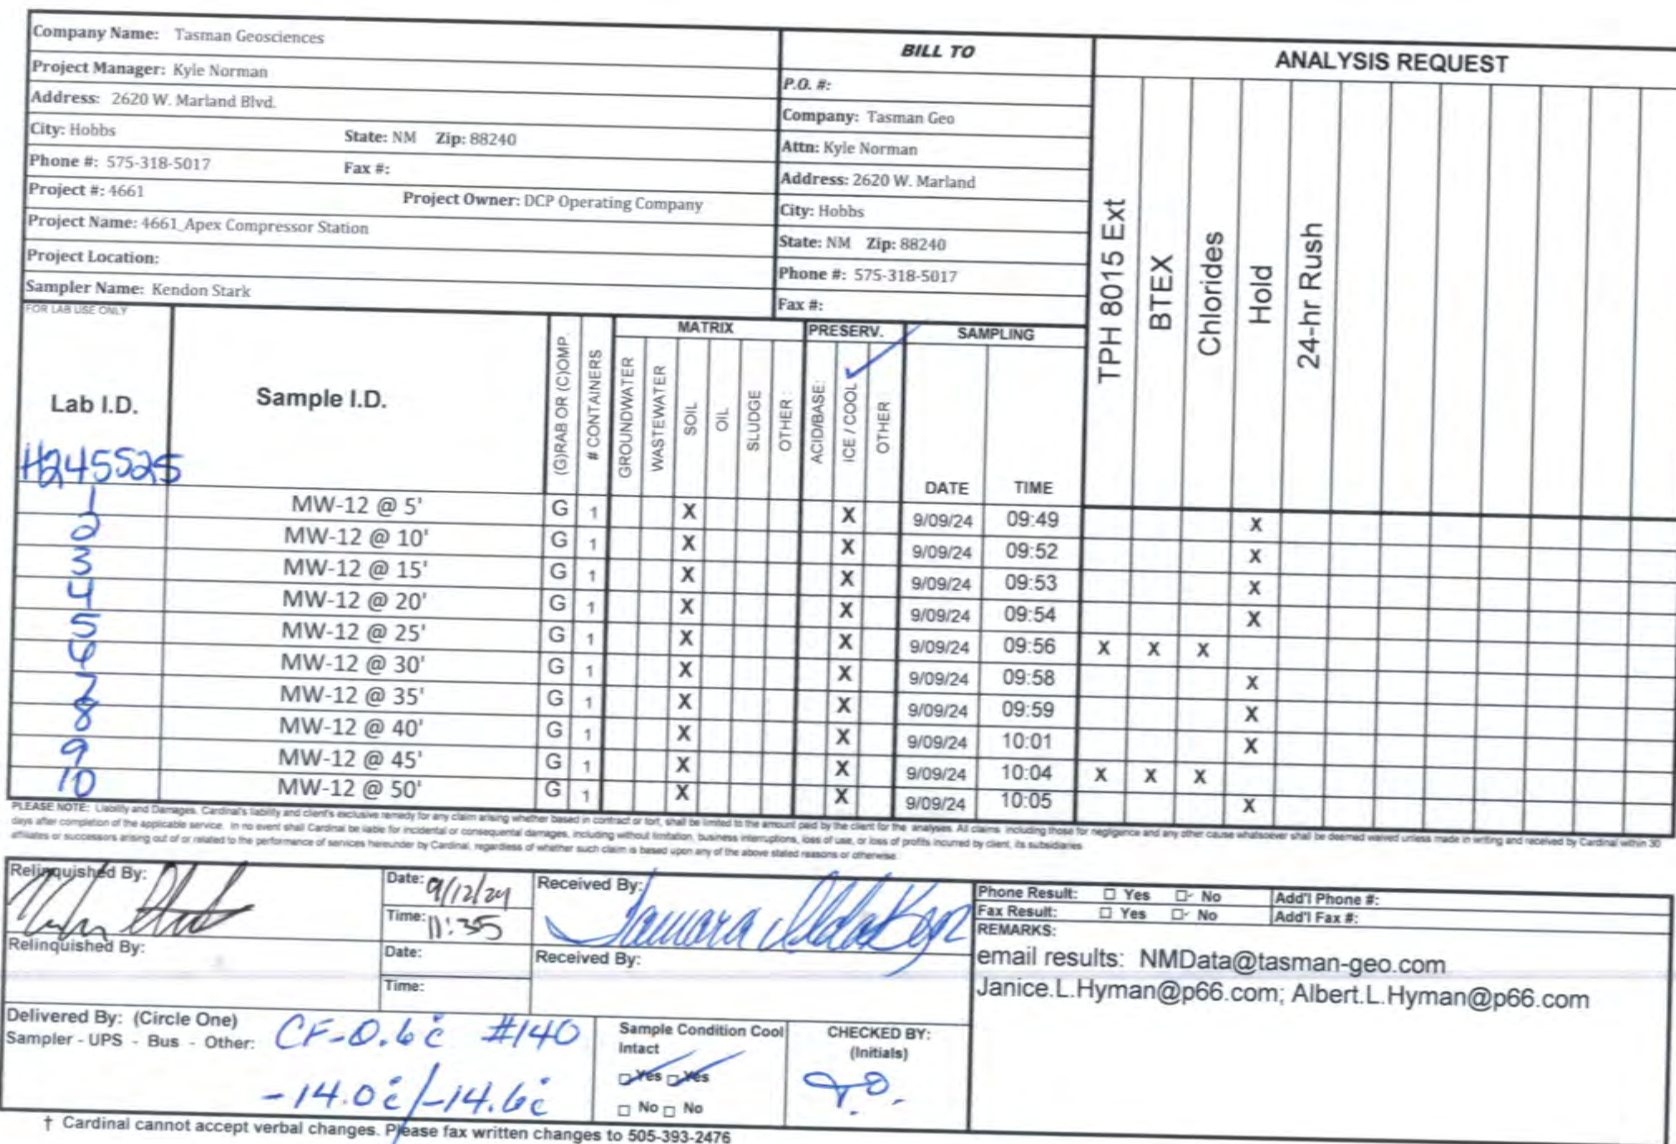 Company Name: Tasman Geosciences
Project Manager: Kyle Norman
Address: 2620 W. Marland Blvd.
City: Hobbs State: NM Zip: 88240
Phone #: 575-318-5017 Fax #:
Project #: 4661 Project Owner: DCP Operating Company
Project Name: 4661_Apex Compressor Station
Project Location:
Sampler Name: Kendon Stark
BILL TO
P.O. #:
Company: Tasman Geo
Attn: Kyle Norman
Address: 2620 W. Marland
City: Hobbs
State: NM Zip: 88240
Phone #: 575-318-5017
Fax #:
ANALYSIS REQUEST
TPH 8015 Ext
BTEX
Chlorides
Hold
24-hr Rush
FOR LAB USE ONLY
Lab I.D.
H245525
Sample I.D.
(G)RAB OR (C)OMP.
# CONTAINERS
MATRIX
GROUNDWATER
WASTEWATER
SOIL
OIL
SLUDGE
OTHER :
PRESERV.
ACID/BASE:
ICE / COOL
OTHER
SAMPLING
DATE TIME
1 MW-12 @ 5' G 1 X X 9/09/24 09:49 X
2 MW-12 @ 10' G 1 X X 9/09/24 09:52 X
3 MW-12 @ 15' G 1 X X 9/09/24 09:53 X
4 MW-12 @ 20' G 1 X X 9/09/24 09:54 X
5 MW-12 @ 25' G 1 X X 9/09/24 09:56 X X X
6 MW-12 @ 30' G 1 X X 9/09/24 09:58 X
7 MW-12 @ 35' G 1 X X 9/09/24 09:59 X
8 MW-12 @ 40' G 1 X X 9/09/24 10:01 X
9 MW-12 @ 45' G 1 X X 9/09/24 10:04 X X X
10 MW-12 @ 50' G 1 X X 9/09/24 10:05 X
PLEASE NOTE: Liability and Damages. Cardinal's liability and client's exclusive remedy for any claim arising whether based in contract or tort, shall be limited to the amount paid by the client for the analyses. All claims including those for negligence and any other cause whatsoever shall be deemed waived unless made in writing and received by Cardinal within 30
days after completion of the applicable service. In no event shall Cardinal be liable for incidental or consequental damages, including without limitation, business interruptions, loss of use, or loss of profits incurred by client, its subsidiaries
affiliates or successors arising out of or related to the performance of services hereunder by Cardinal, regardless of whether such claim is based upon any of the above stated reasons or otherwise.
Relinquished By:
Date: 9/12/24
Time: 11:35
Received By:
Tamara
Relinquished By:
Date:
Time:
Received By:
Phone Result: Yes No Add'l Phone #:
Fax Result: Yes No Add'l Fax #:
REMARKS:
email results: NMData@tasman-geo.com
Janice.L.Hyman@p66.com; Albert.L.Hyman@p66.com
Delivered By: (Circle One)
Sampler - UPS - Bus - Other:
CF-0.6c #140
-14.0c/-14.6c
Sample Condition Cool
Intact
Yes Yes
No No
CHECKED BY:
(Initials)
T.O.
† Cardinal cannot accept verbal changes. Please fax written changes to 505-393-2476